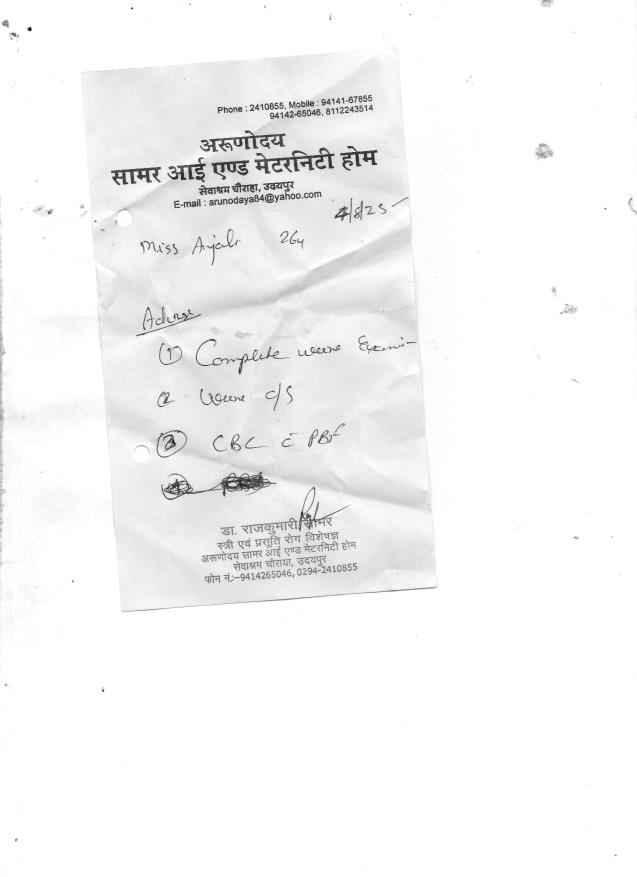 Phone : 2410855, Mobile : 94141-67855
94142-65046, 8112243514
अरूणोदय
सामर आई एण्ड मेटरनिटी होम
सेवाश्रम चौराहा, उदयपुर
E-mail : arunodaya84@yahoo.com
4/8/25
Miss Anjali 26y
Advise
(1) Complete urine Exami-
2 Urine c/s
(3) CBC c̄ PBF
डा. राजकुमारी सामर
स्त्री एवं प्रसूति रोग विशेषज्ञ
अरूणोदय सामर आई एण्ड मेटरनिटी होम
सेवाश्रम चौराया, उदयपुर
फोन नं:–9414265046, 0294-2410855